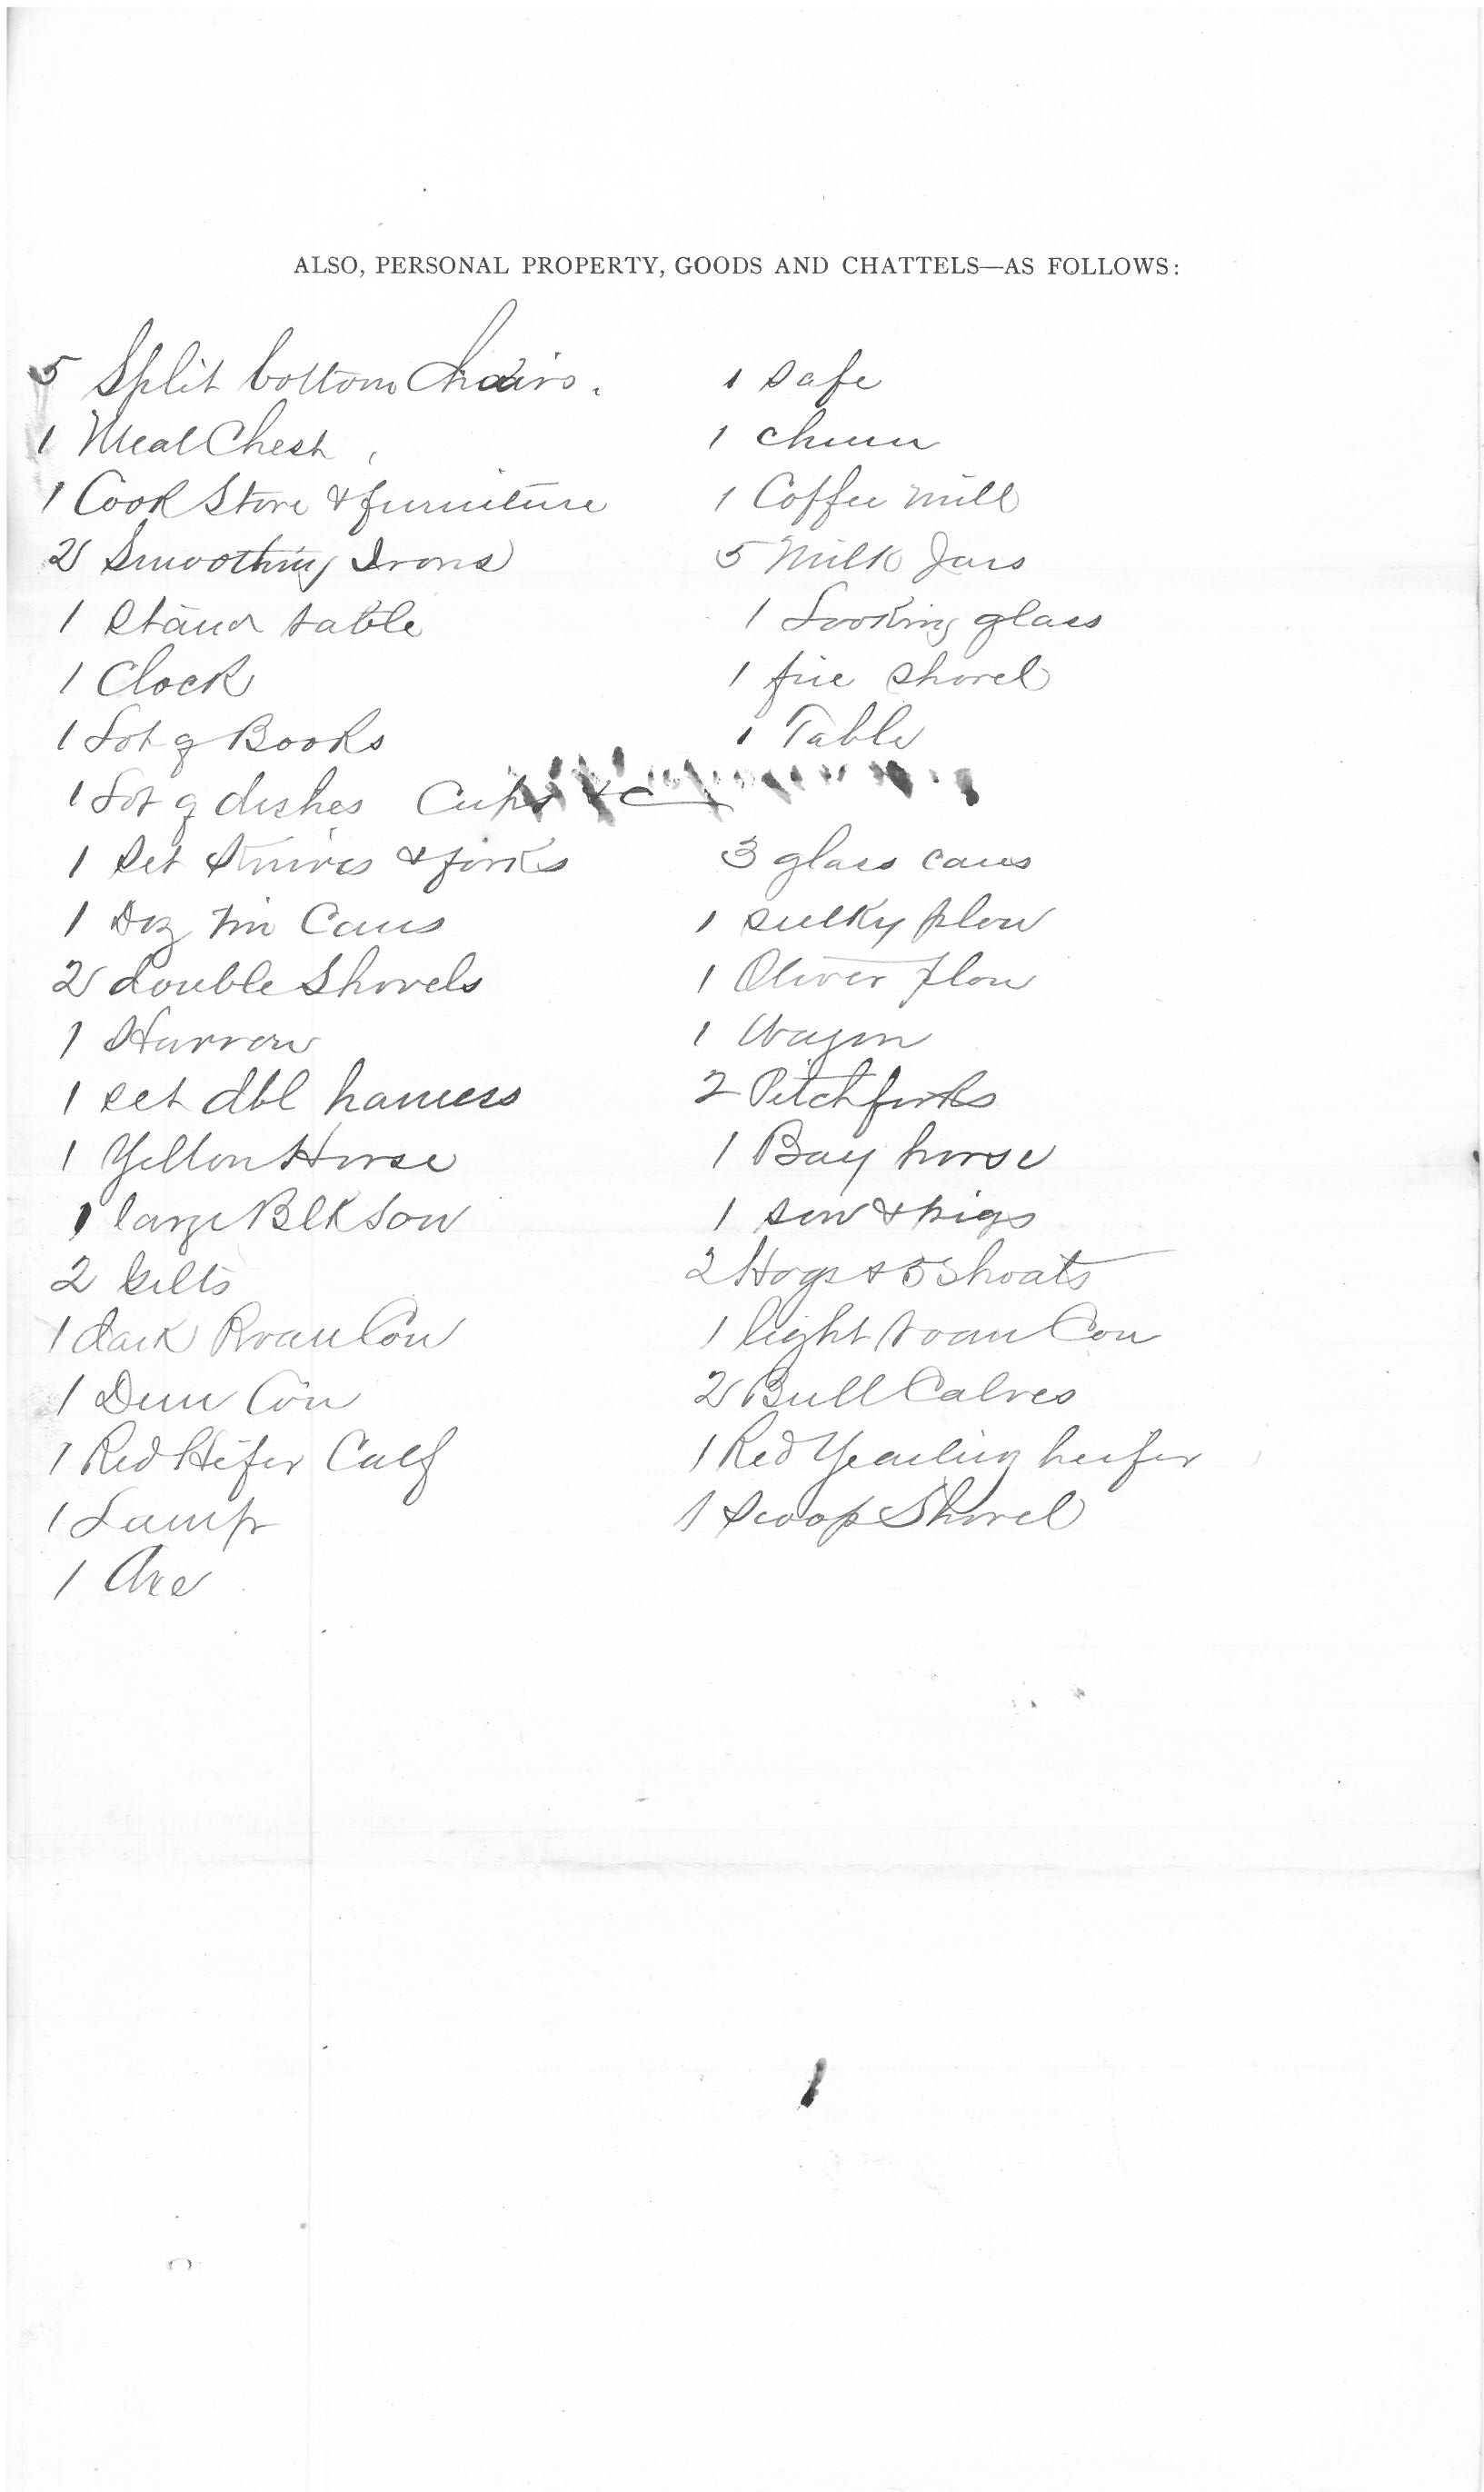 ALSO, PERSONAL PROPERTY, GOODS AND CHATTELS—AS FOLLOWS:
5 Split bottom Chairs.
1 Meal Chest,
1 Cook Stove & furniture
2 Smoothing Irons
1 Stand table
1 Clock
1 Lot of Books
1 Lot of dishes Cups &c
1 Set Knives & forks
1 Doz Tin Cans
2 double Shovels
1 Harrow
1 set dbl harness
1 Yellow Horse
1 large Blk Sow
2 Gilts
1 dark Roan Cow
1 Dun Cow
1 Red Heifer Calf
1 Lamp
1 Axe
1 Safe
1 Churn
1 Coffee Mill
5 Milk Jars
1 Looking glass
1 fire Shovel
1 Table
3 glass cans
1 sulky plow
1 Oliver plow
1 Wagon
2 Pitchforks
1 Bay horse
1 sow & pigs
2 Hogs & 5 Shoats
1 light roan Cow
2 Bull Calves
1 Red Yearling heifer
1 Scoop Shovel